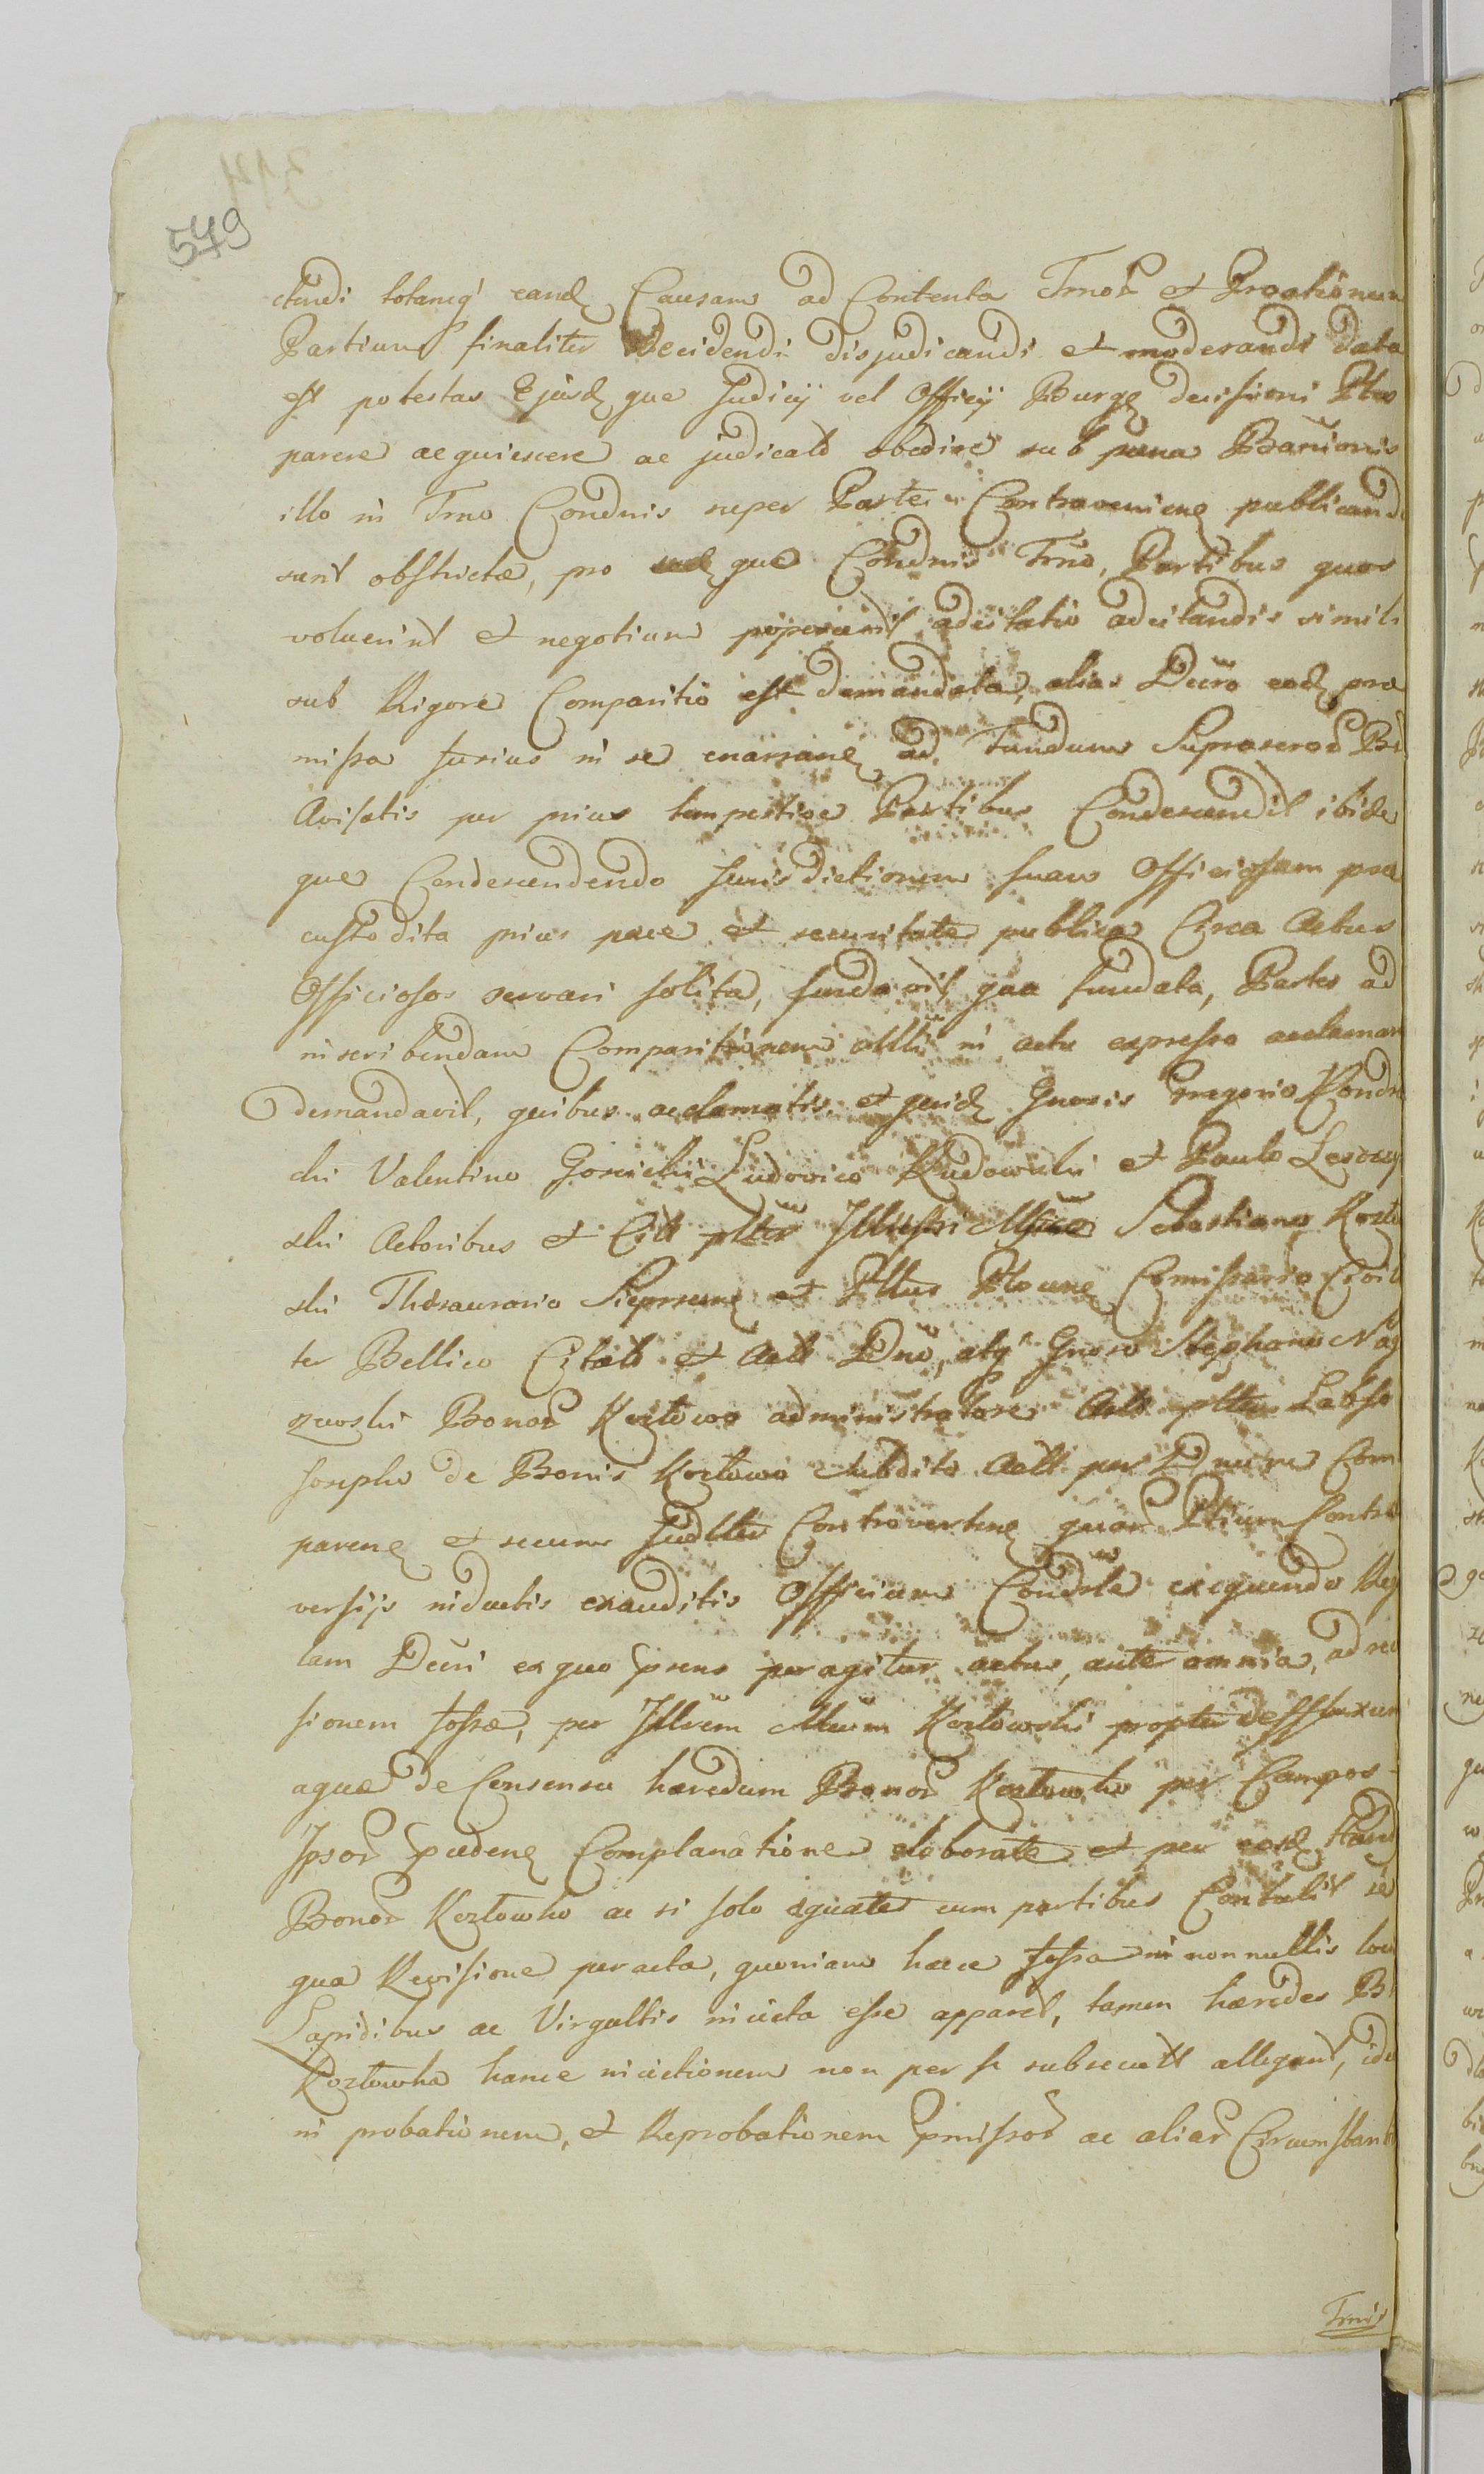 579
ctendi totamq́ eand Causam ad Contenta Trnor et Proationum
Partium finaliter Decidendi disjudicandi et moderandi data
est potestas Ejusd que Judicij vel Officij Burg decisioni Ptes
parere acquiescere ac judicato obedire sub pæna Bannionis
illo in Trno Condnis super Parte Contravenien publicand
sunt obstrictæ, pro eod que Condnis Trno, Partibus quos
voluerint et negotium poposcerit adcitatio adcitandis simili
sub Rigore Comparitio est demandata, alias Dcro eod præ
missa fusius in se enarran ad Fundum Suprascrod Br
Avisatis per prius tempestive Partibus Condescendit ibide
que Condescendendo Jurisdictionem suam Officiosam præ
custodita prius pace et securitate publica Circa Actus
Officiosos servari solita, fundavit qua fundata, Partes ad
inscribendam Comparitionem in actu expresso acclamari
demandavit, quibus acclamatis et quid Gnosis Gregorio Kondra
cki Valentino Gosicki Ludovico Rudowski et Paulo Leszczy
ski Actoribus et Citt pltr Illustri Mfico Sebastiano Kozło
ski Thesaurario Sieprscen et Pllus Plocen Comissario Civili
ter Bellico Citato et Actt Dno, atq Gnoso Stephano Nag
rzewski Bonor Kozłowo administratore Actt pltr Labso
Josepho de Bonis Kozłowo subdito Actt per Dnum Com
paren et secum Judltr Controverten quor Ptium Contro
versijs inductis exauditis Officium Condsle exequendo Reg
lam Dcri ex quo præns peragitur actus, ante omnia, ad revi
sionem fossæ, per Illrem Mcum Kozłowski propter deffluxum
aquæ de Consensu hæredum Bonor Kozłowko per Campos
Ipsor præden Complanatione elaborate et per eosd Hæred
Bonor Kozłowko ac si solo æquate cum partibus Contulit se
qua Revisione peracta, quoniam hæce fossa in nonnullis loci
Lapidibus ac Virgultis iniecta esse apparet, tamen hæredes B
Kozłowko hance iniectionem non per se subsecutt allegant, ide
in probationem, et Reprobationem præmissor ac aliar Circumstanti
Trnis